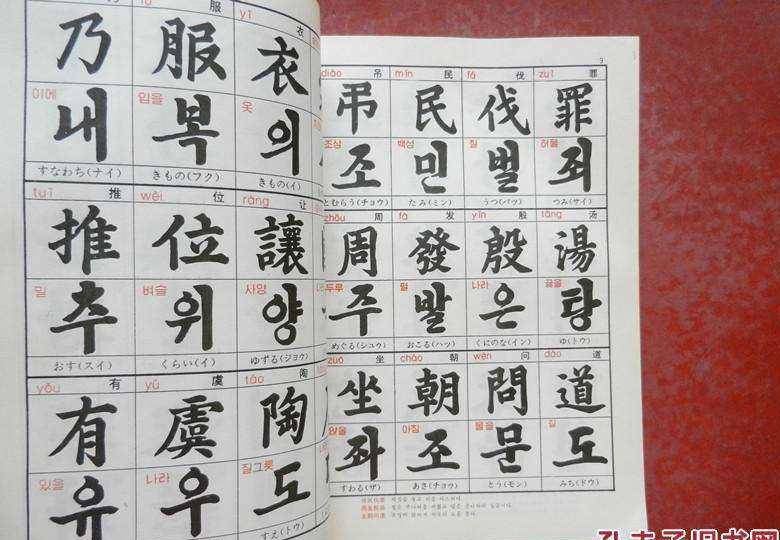 服
yī 衣
乃 服 衣
이에 입을 옷
내 복 의
すなわち(ナイ) きもの(フク) きもの(イ)
tuī 推 wèi 位 ràng 让
推 位 讓
밀 벼슬 사양
추 위 양
おす(スイ) くらい(イ) ゆずる(ジョウ)
yǒu 有 yú 虞 táo 陶
有 虞 陶
있을 나라 질그릇
유 우 도
すえ(トウ)
9
diào 吊 mín 民 fá 伐 zuì 罪
弔 民 伐 罪
조상 백성 칠 허물
조 민 벌 죄
とむらう(チョウ) たみ(ミン) うつ(バツ) つみ(サイ)
zhōu 周 fā 发 yīn 殷 tāng 汤
周 發 殷 湯
두루 필 나라 끓을
주 발 은 탕
めぐる(シュウ) おこる(ハツ) くにのな(イン) ゆ(トウ)
zuò 坐 cháo 朝 wèn 问 dào 道
坐 朝 問 道
앉을 아침 물을 길
좌 조 문 도
すわる(ザ) あさ(チョウ) とう(モン) みち(ドウ)
孔夫子旧书网